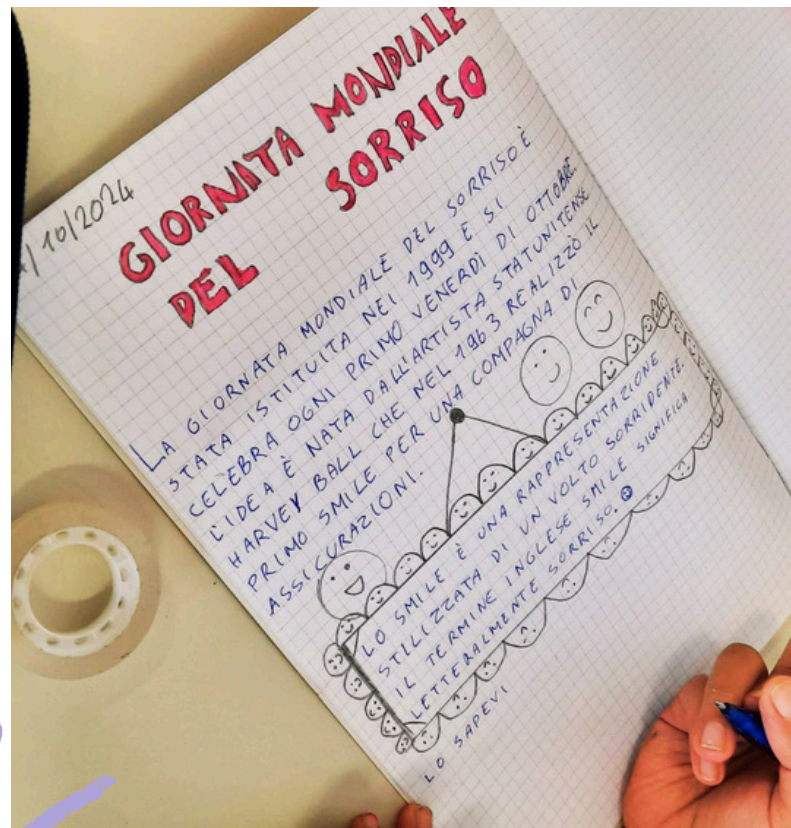 /10/2024
GIORNATA MONDIALE
DEL SORRISO
LA GIORNATA MONDIALE DEL SORRISO È
STATA ISTITUITA NEI 1999 E SI
CELEBRA OGNI PRIMO VENERDÌ DI OTTOBRE.
L'IDEA È NATA DALL'ARTISTA STATUNITENSE
HARVEY BALL CHE NEL 1963 REALIZZÒ IL
PRIMO SMILE PER UNA COMPAGNA DI
ASSICURAZIONI.
LO SMILE È UNA RAPPRESENTAZIONE
STILIZZATA DI UN VOLTO SORRIDENTE.
IL TERMINE INGLESE SMILE SIGNIFICA
LETTERALMENTE SORRISO.
LO SAPEVI